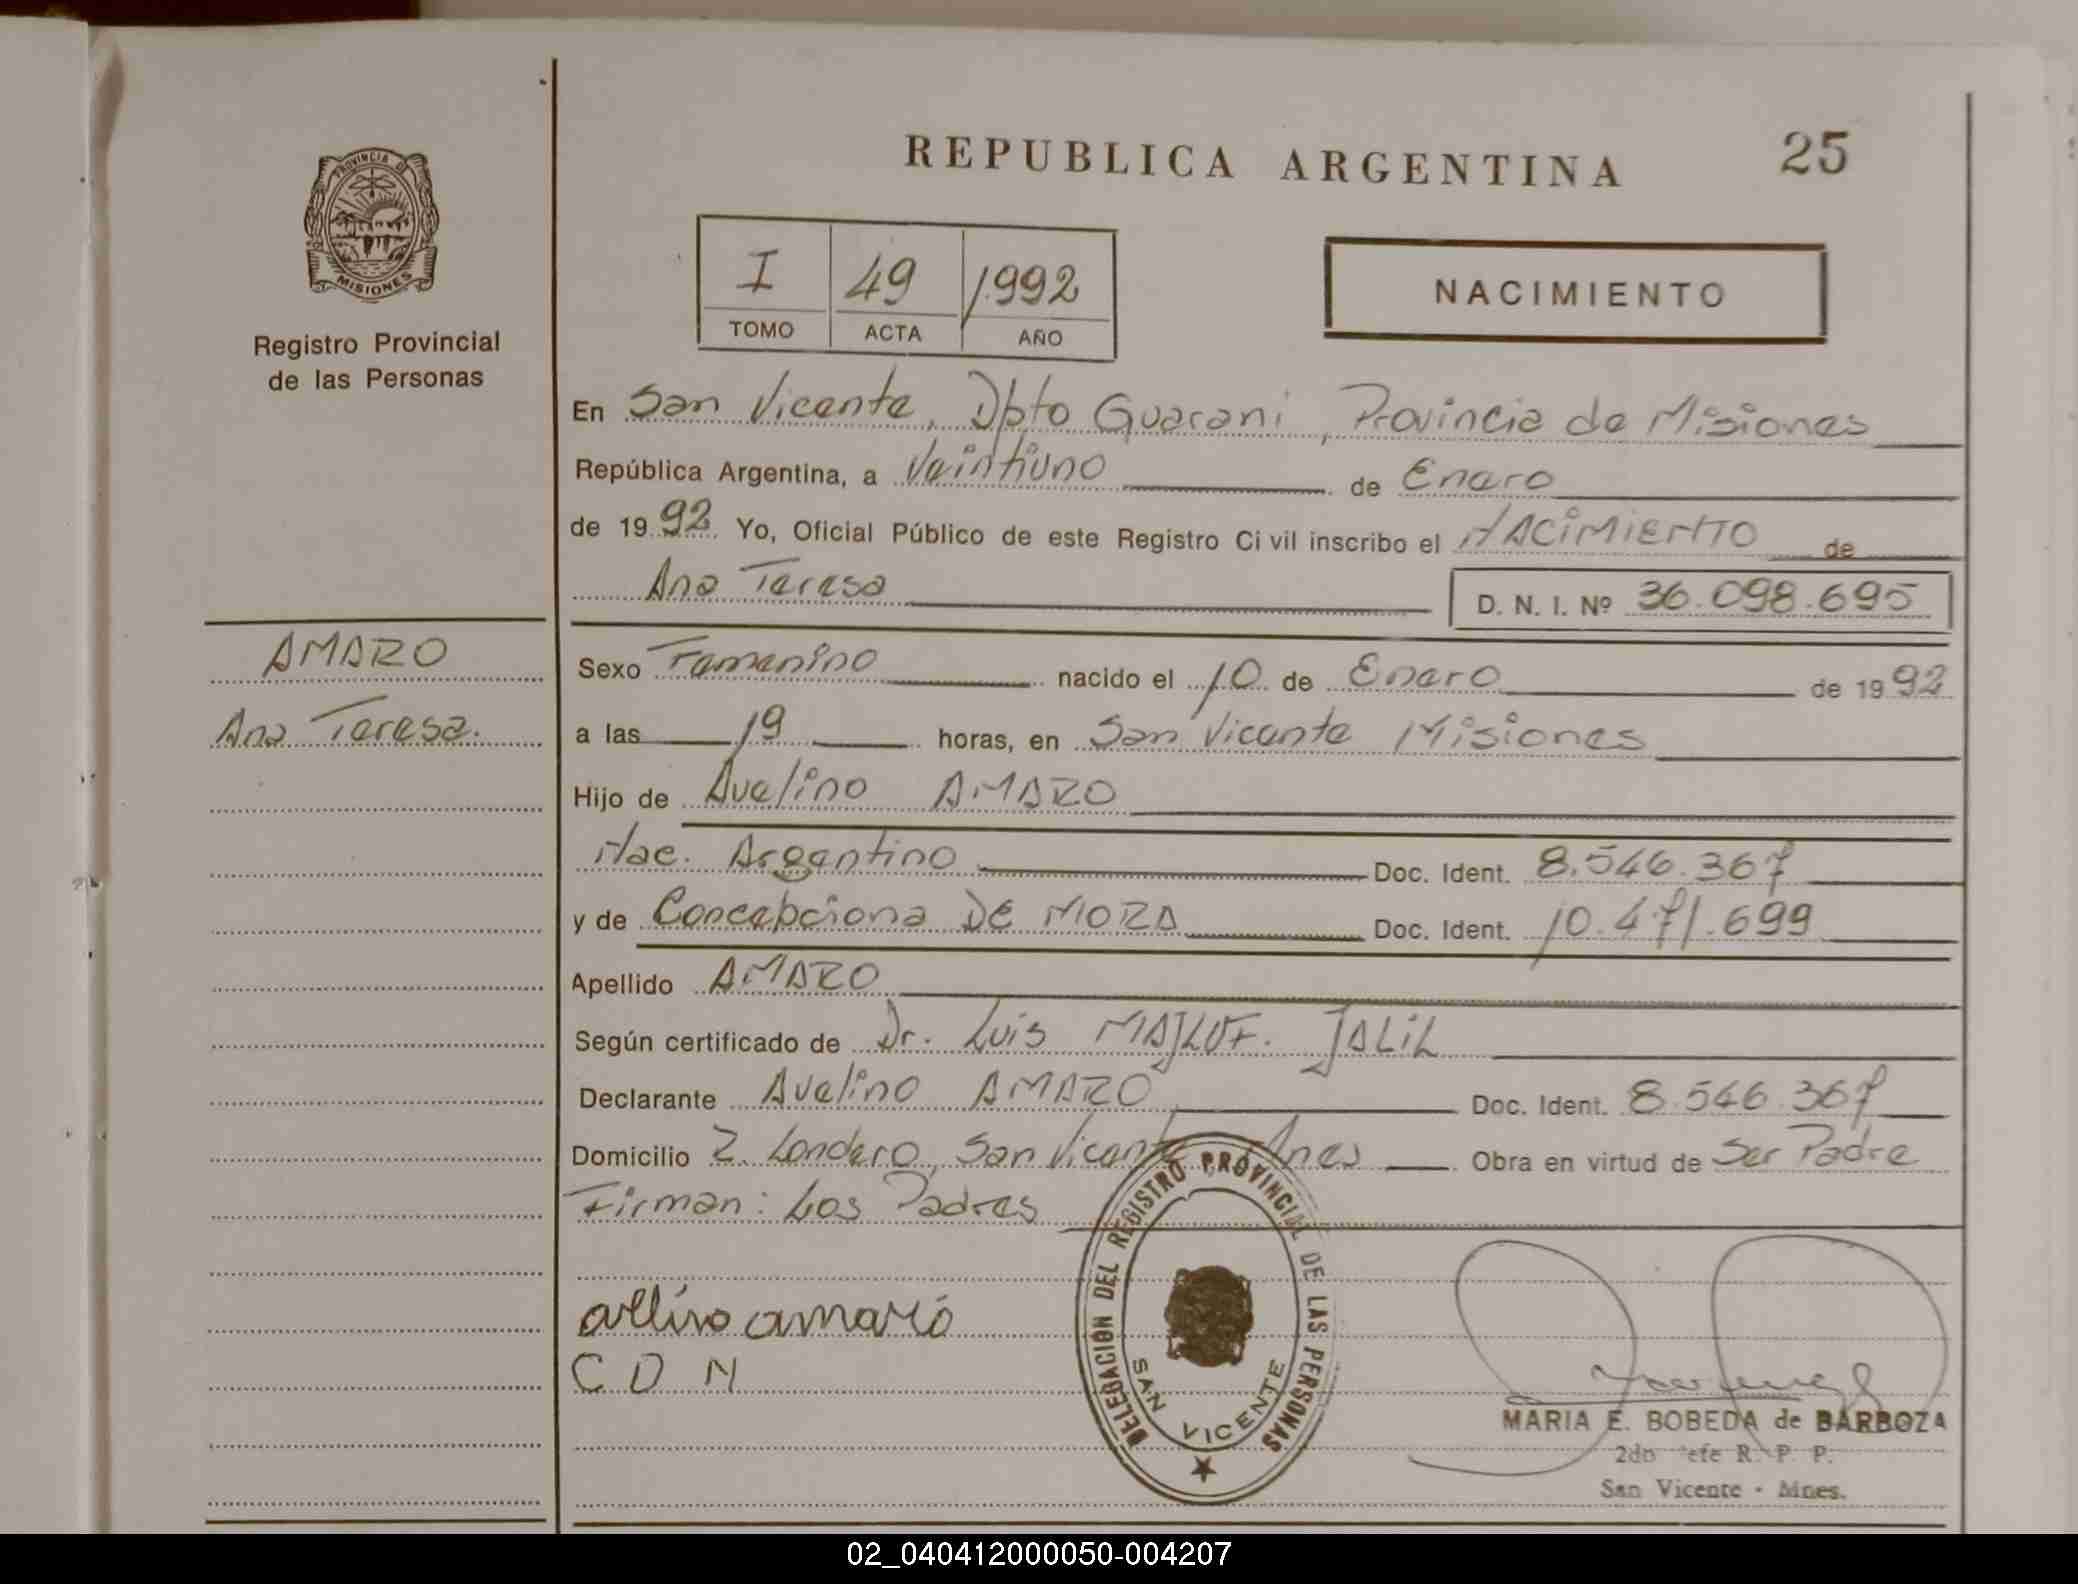 REPUBLICA ARGENTINA
25
PROVINCIA DE
MISIONES
Registro Provincial
de las Personas
I 49 1992
TOMO ACTA AÑO
NACIMIENTO
En San Vicente, Dpto Guarani, Provincia de Misiones
República Argentina, a Veintiuno de Enero
de 1992 Yo, Oficial Público de este Registro Civil inscribo el NACIMIENTO de
Ana Teresa D. N. I. Nº 36.098.695
AMARO
Ana Teresa.
Sexo Femenino nacido el 10 de Enero de 1992
a las 19 horas, en San Vicente Misiones
Hijo de Avelino AMARO
Nac. Argentino Doc. Ident. 8.546.367
y de Concepciona DE MORA Doc. Ident. 10.471.699
Apellido AMARO
Según certificado de Dr. Luis MAJLUF. JALIL
Declarante Avelino AMARO Doc. Ident. 8.546.367
Domicilio Londero, San Vicente Mnes Obra en virtud de Ser Padre
Firman: Los Padres
amaro
C D M
DELEGACION DEL REGISTRO PROVINCIAL DE LAS PERSONAS
SAN VICENTE
MARIA E. BOBEDA de BARBOZA
2do Jefe R. P. P.
San Vicente - Mnes.
02_040412000050-004207